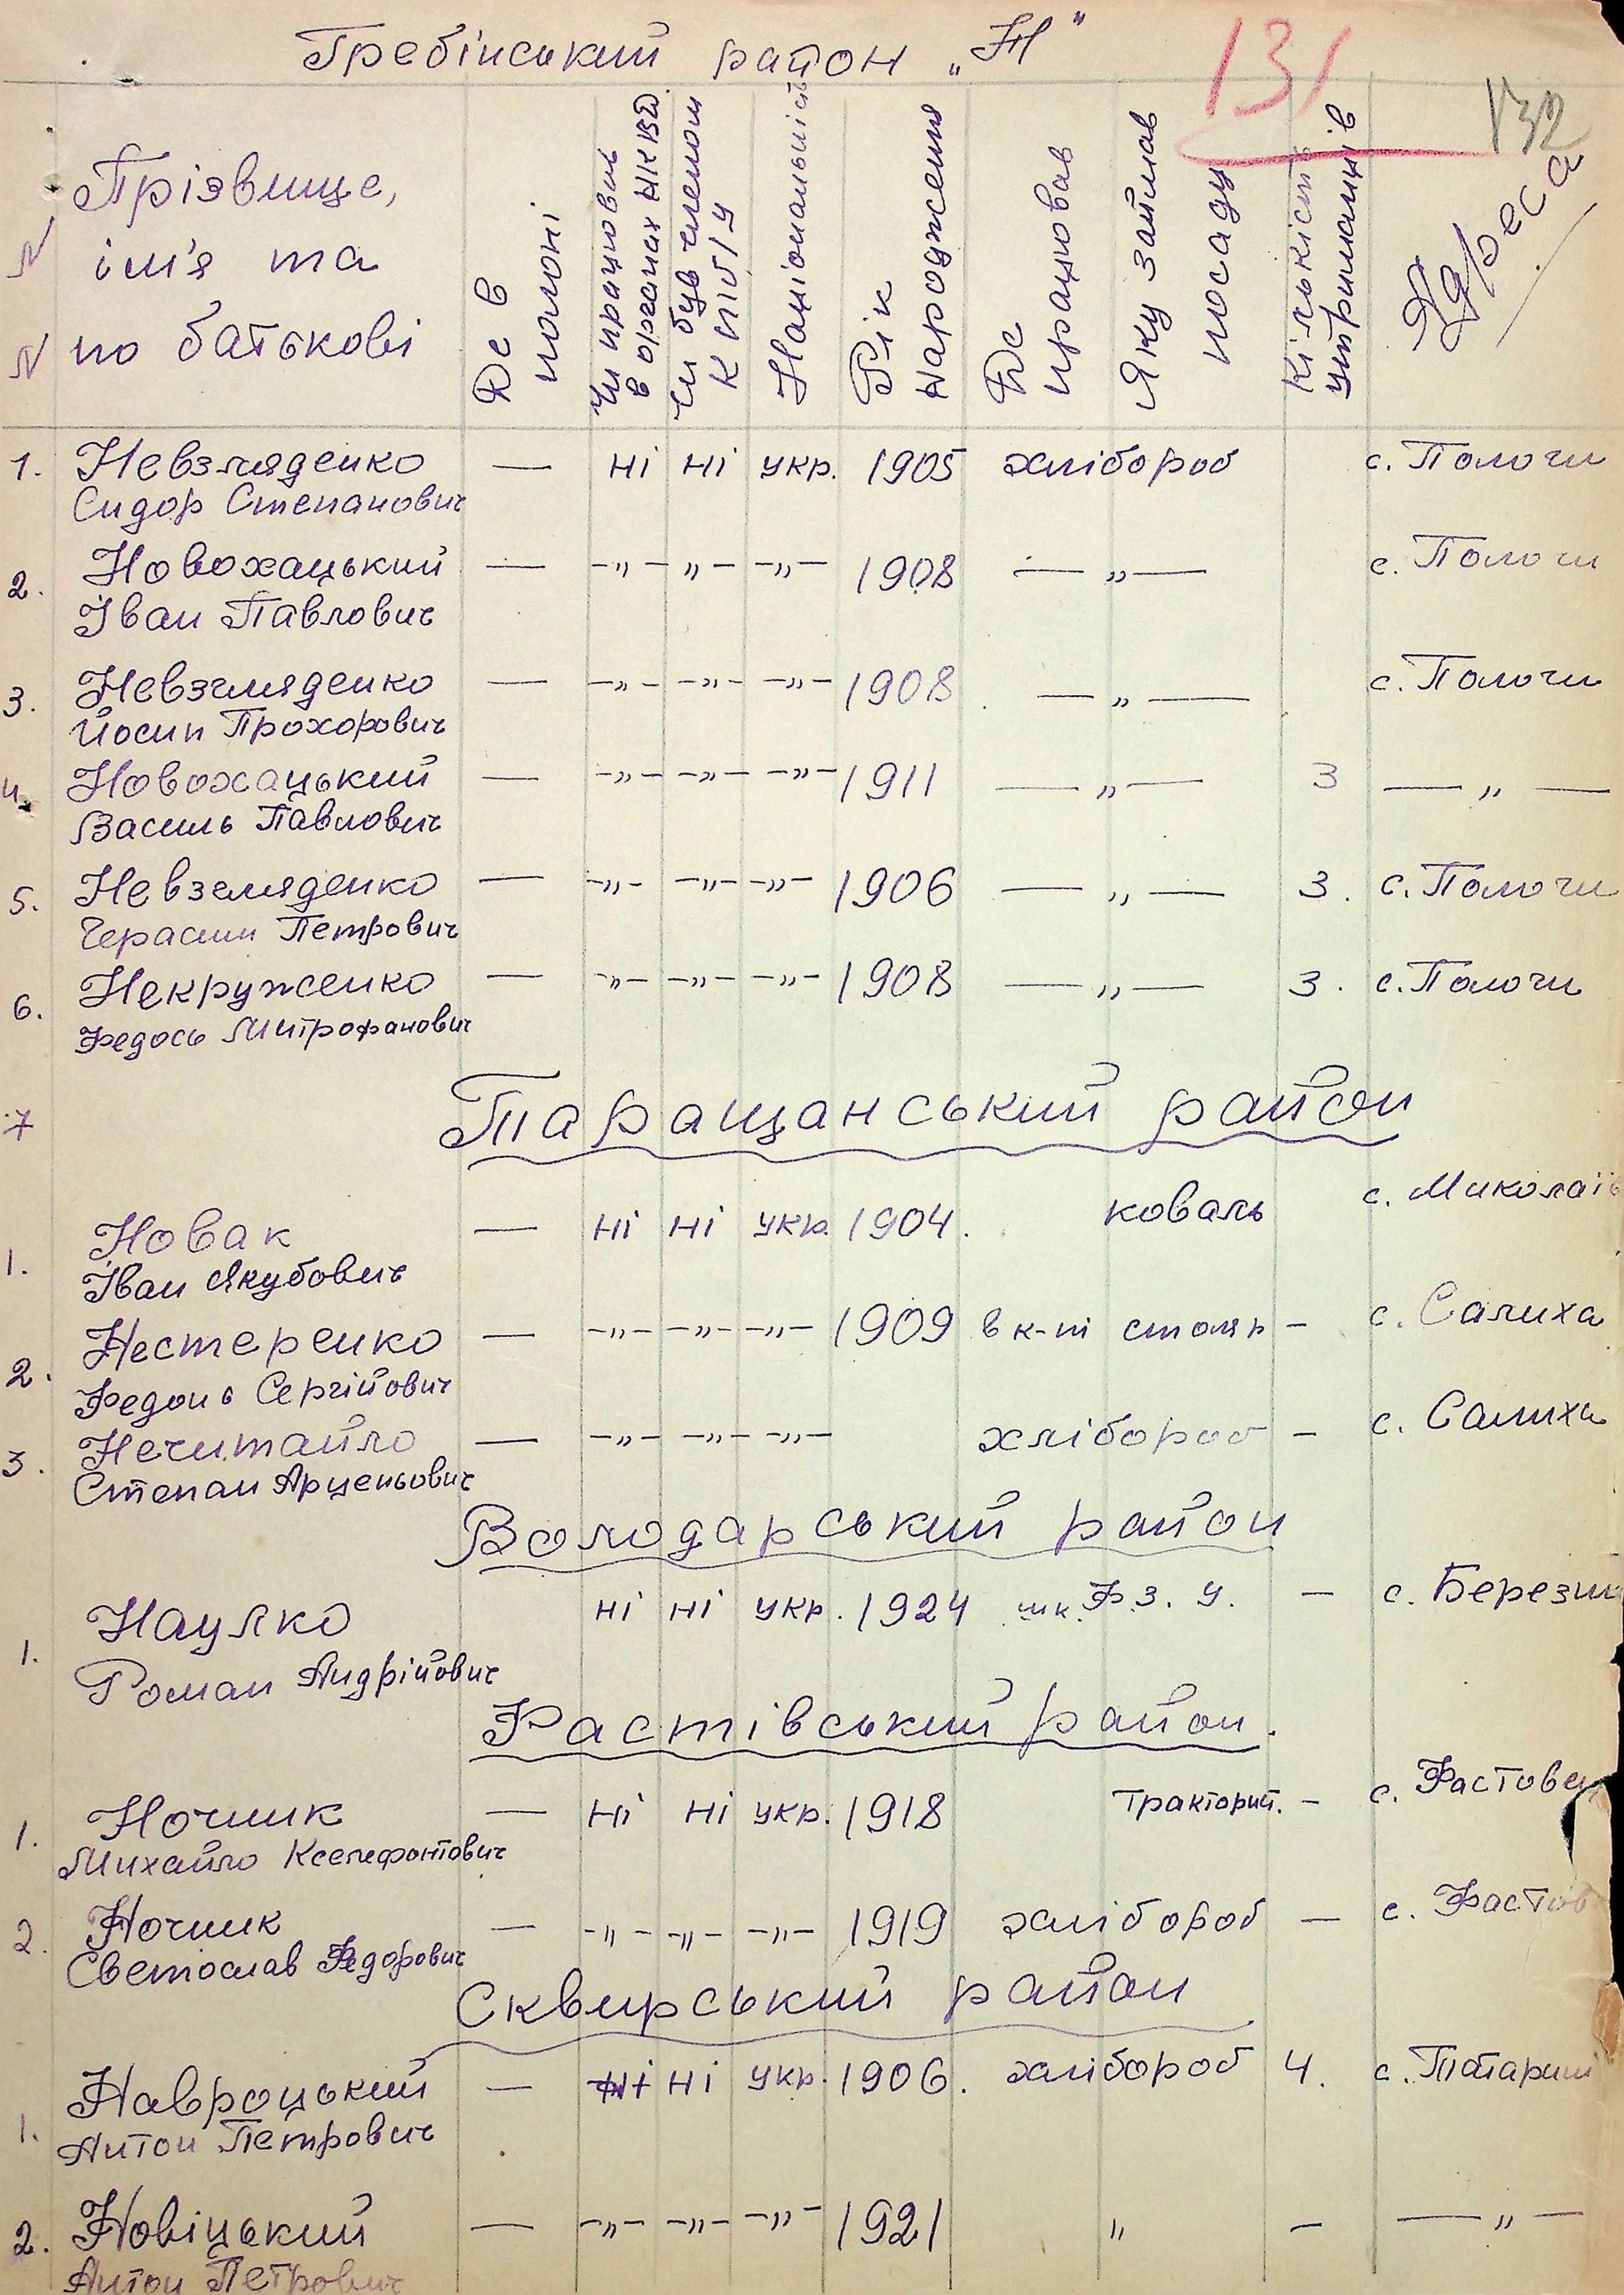 Гребінський район „Н"
131
132
N
N
Прізвище,
ім'я та
по батькові
Де в
полоні
Чи працював
в органах НКВД
Чи був членом
КП/б/У
Національність
Рік
народження
Де
працював
Яку займав
посаду
Кількість
утриманців
Адреса
1. Невзгляденко — ні ні укр. 1905 хлібороб с. Пологи
Сидор Степанович
2. Новохацький — -„- „- -„- 1908 — „ — с. Пологи
Іван Павлович
3. Невзгляденко — -„- -„- -„- 1908 — „ — с. Пологи
Йосип Прохорович
4. Новохацький — -„- -„- -„- 1911 — „ — 3 — „ —
Василь Павлович
5. Невзгляденко — -„- -„- -„- 1906 — „ — 3. с. Пологи
Герасим Петрович
6. Некруженко — -„- -„- -„- 1908 — „ — 3. с. Пологи
Федось Митрофанович
7
Таращанський район
1. Новак — ні ні укр. 1904. коваль с. Миколаїв
Іван Якубович
2. Нестеренко — -„- -„- -„- 1909 в к-пі столяр - с. Салиха
Федось Сергійович
3. Нечитайло — -„- -„- -„- хлібороб - с. Салиха
Степан Арценьович
Володарський район
1. Науяко ні ні укр. 1924 шк. Ф.З.У. — с. Березн
Роман Андрійович
Фастівський район.
1. Ночник — ні ні укр. 1918 тракторит. - с. Фастовец
Михайло Ксенефонтович
2. Ночник — -„- -„- -„- 1919 хлібороб — с. Фастов
Светослав Федорович
Сквирський район
1. Навроцький — ні ні укр. 1906. хлібороб 4. с. Татарин
Антон Петрович
2. Новіцький — -„- -„- -„- 1921 „ — — „ —
Антон Петрович